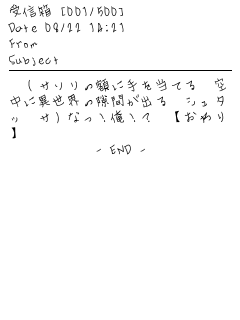 受信箱 [001/500]
Date 08/22 14:21
From
Subject
(サソリの額に手を当てる 空
中に異世界の隙間が出る シュタ
ッ サ)なっ!俺!? 【おわり
】
- END -